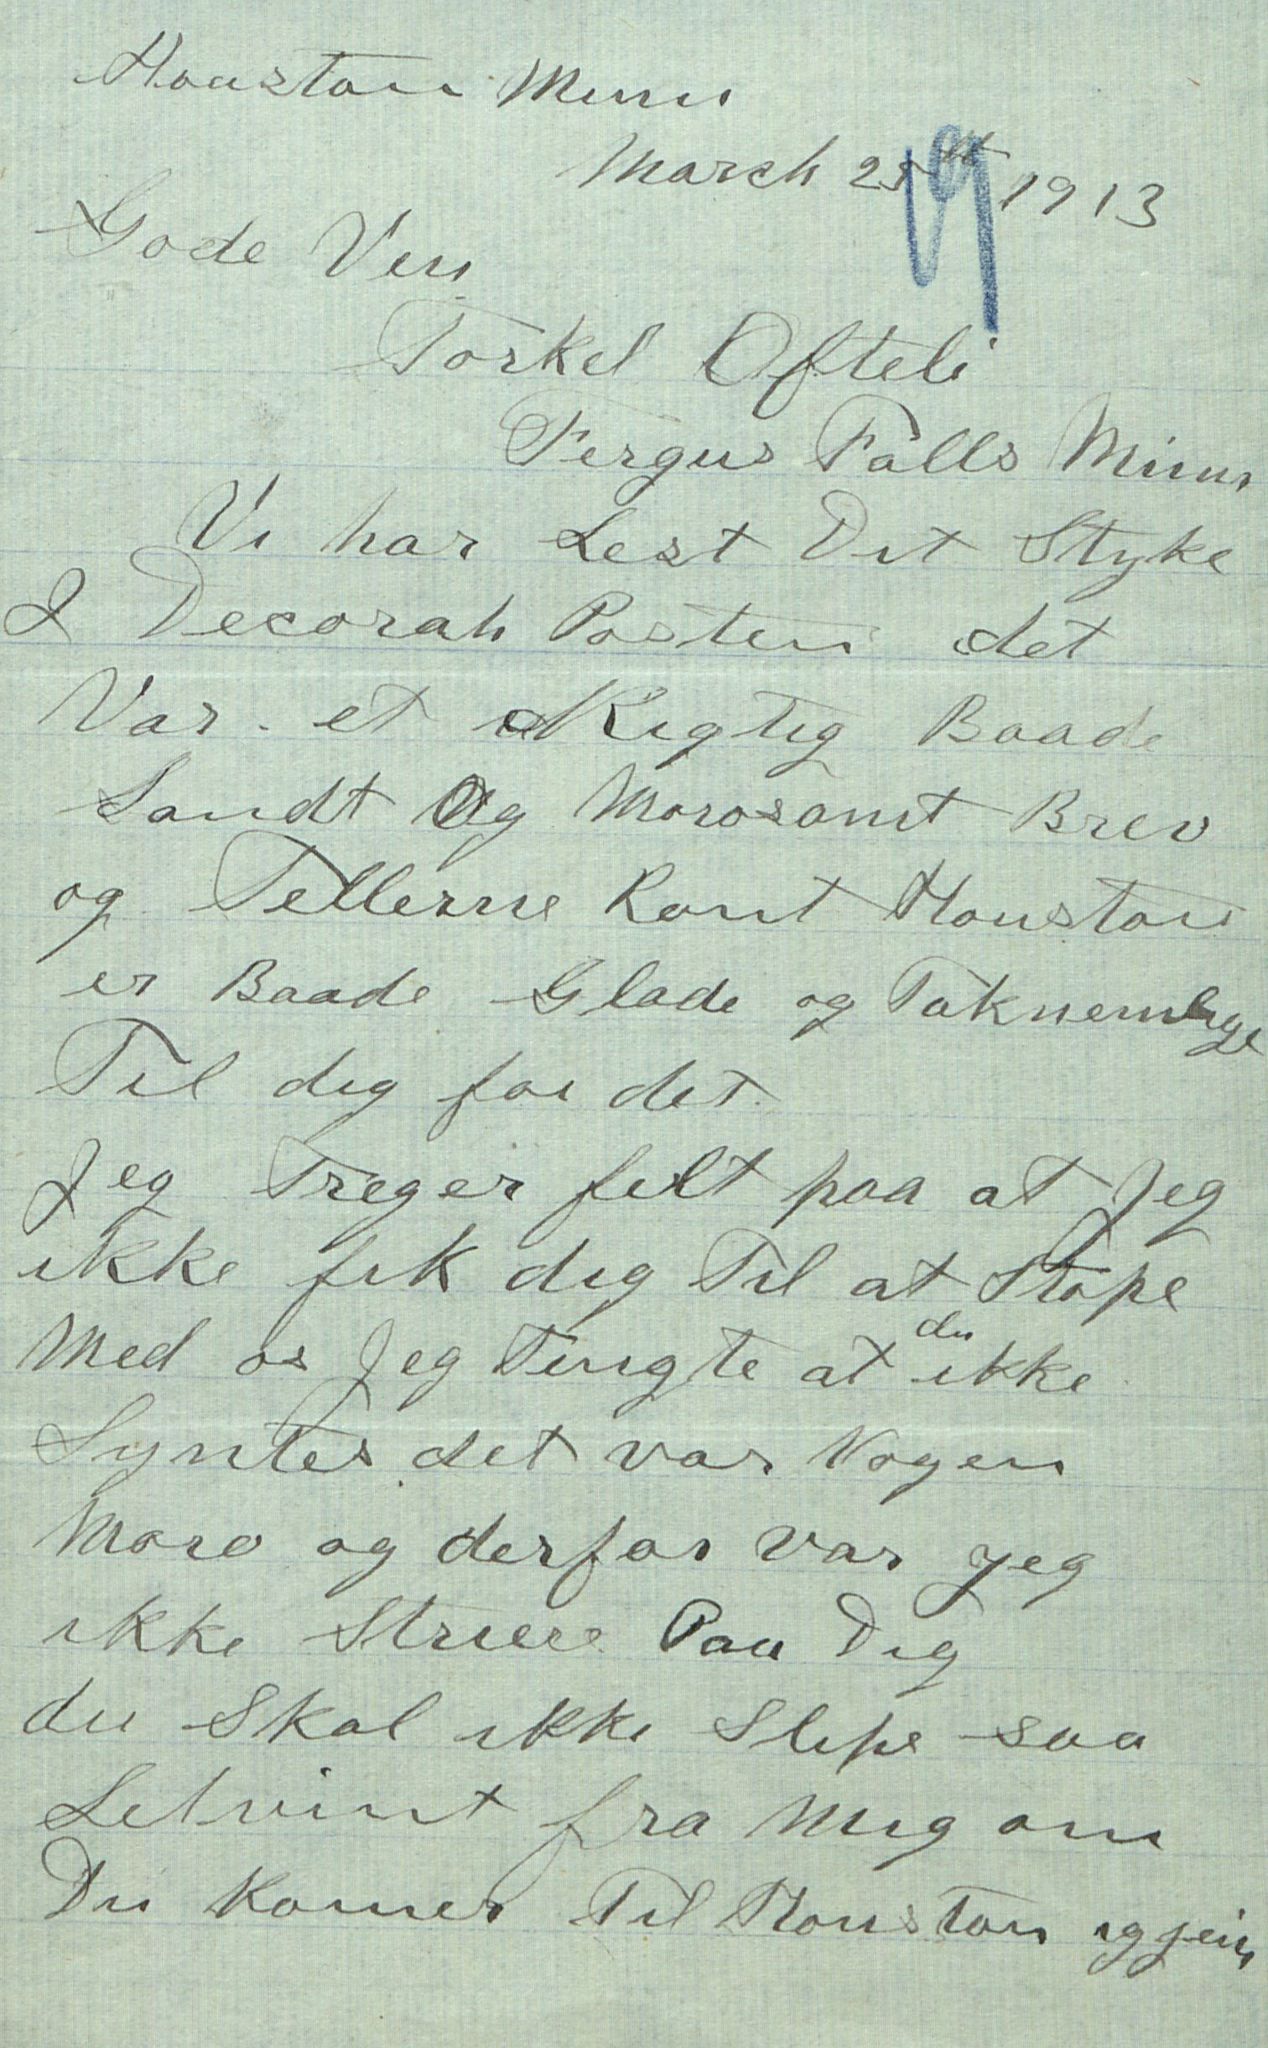 Houston Minn
March 25th 1913
19
Gode Ven
Torkel Ofteli
Fergus Falls Minn
Vi har Lest Dit Styke
I Decorah Posten det
Var et Rigtig Baade
Sandt Og Morosomt Brev
og Tellerne Romt Houston
er Baade Glade og Taknemlige
Til dig for det.
Jeg Treger felt paa at Jeg
ikke fik dig Til at Stope
Med os Jeg Tingte at du ikke
Syntes det var Nogen
Moro og derfor var jeg
ikke Paa Dig
du Skal ikke Slipe saa
Letvint fra Mig om
Du Komer Til Houston iggein